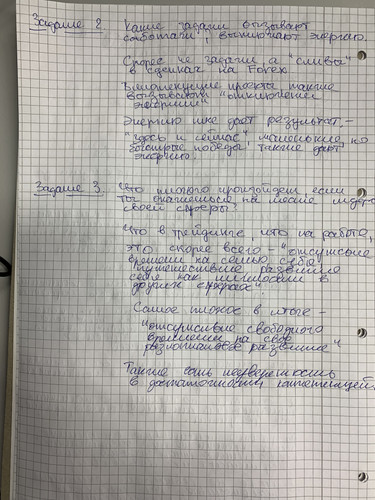 Задание 2 Какие задачи вызывают
"саботаж", выключают энергию.
Скорее не задачи, а "сливы"
в сделках на Forex
Бесконечные проекты также
вызывают "выключение
энергии"
Энергию же дает результат, –
"здесь и сейчас" маленькие, но
быстрые победы, также дают
энергию.
Задание 3. Что плохого произойдет если
ты окажешься на месте гуру
своей сферы?
Что в трейдинге, что на работе,
это скорее всего – "отсутствие
времени на семью, себя
путешествие развитие
себя как личности в
других сферах"
Самое плохое в итоге –
"отсутствие свободного
времени на свое
разноплановое развитие"
Также есть неуверенность
в достаточности компетенций